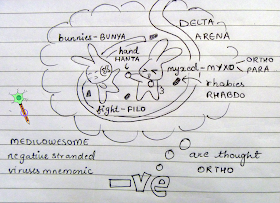 DELTA
ARENA
bunnies-BUNYA
hand
HANTA
myxed-MYXO
ORTHO
PARA
rhabies
RHABDO
fight-FILO
MEDILOWESOME
negative stranded
viruses mnemonic
are thought
ORTHO
-ve